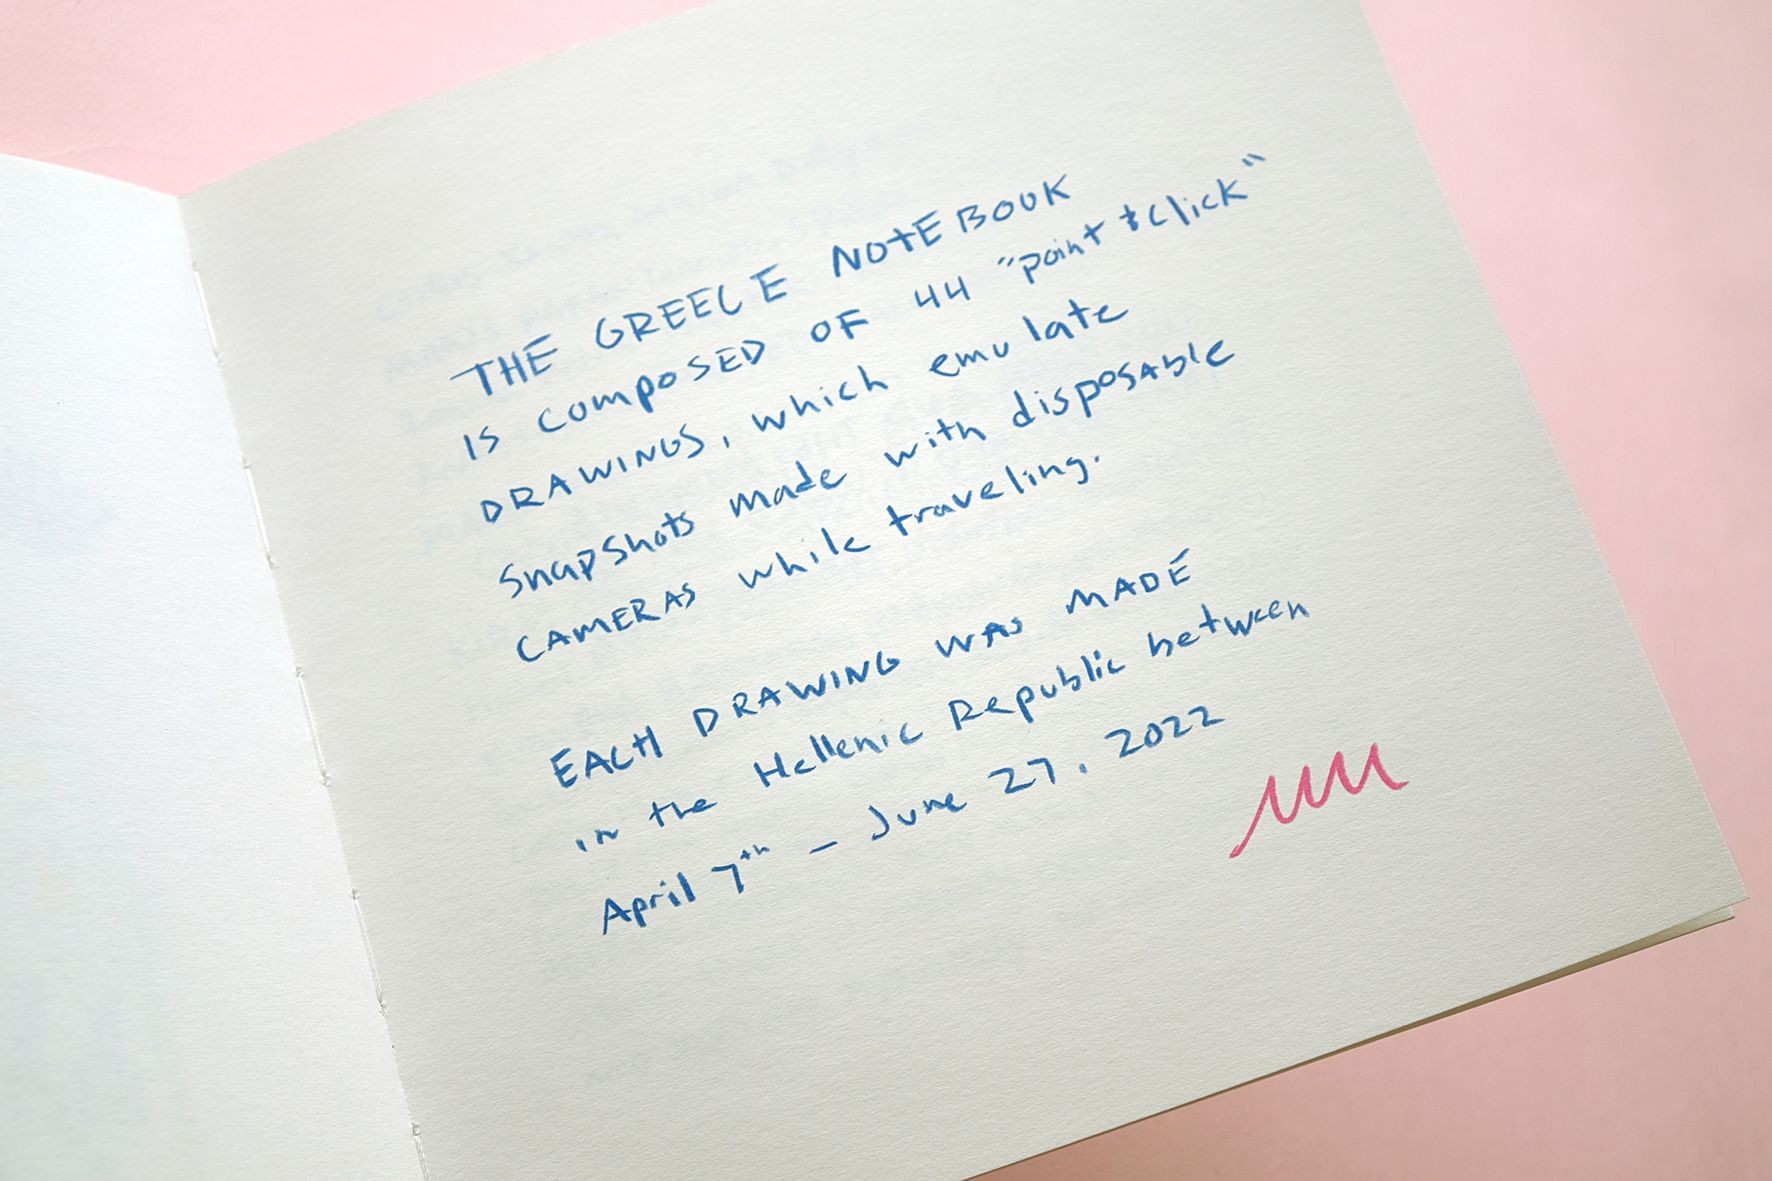 THE GREECE NOTEBOOK
IS COMPOSED OF 44 "point & click"
DRAWINGS, which emulate
SnapShots made with disposable
CAMERAS while traveling.
EACH DRAWING WAS MADE
in the Hellenic Republic between
April 7th – June 27, 2022